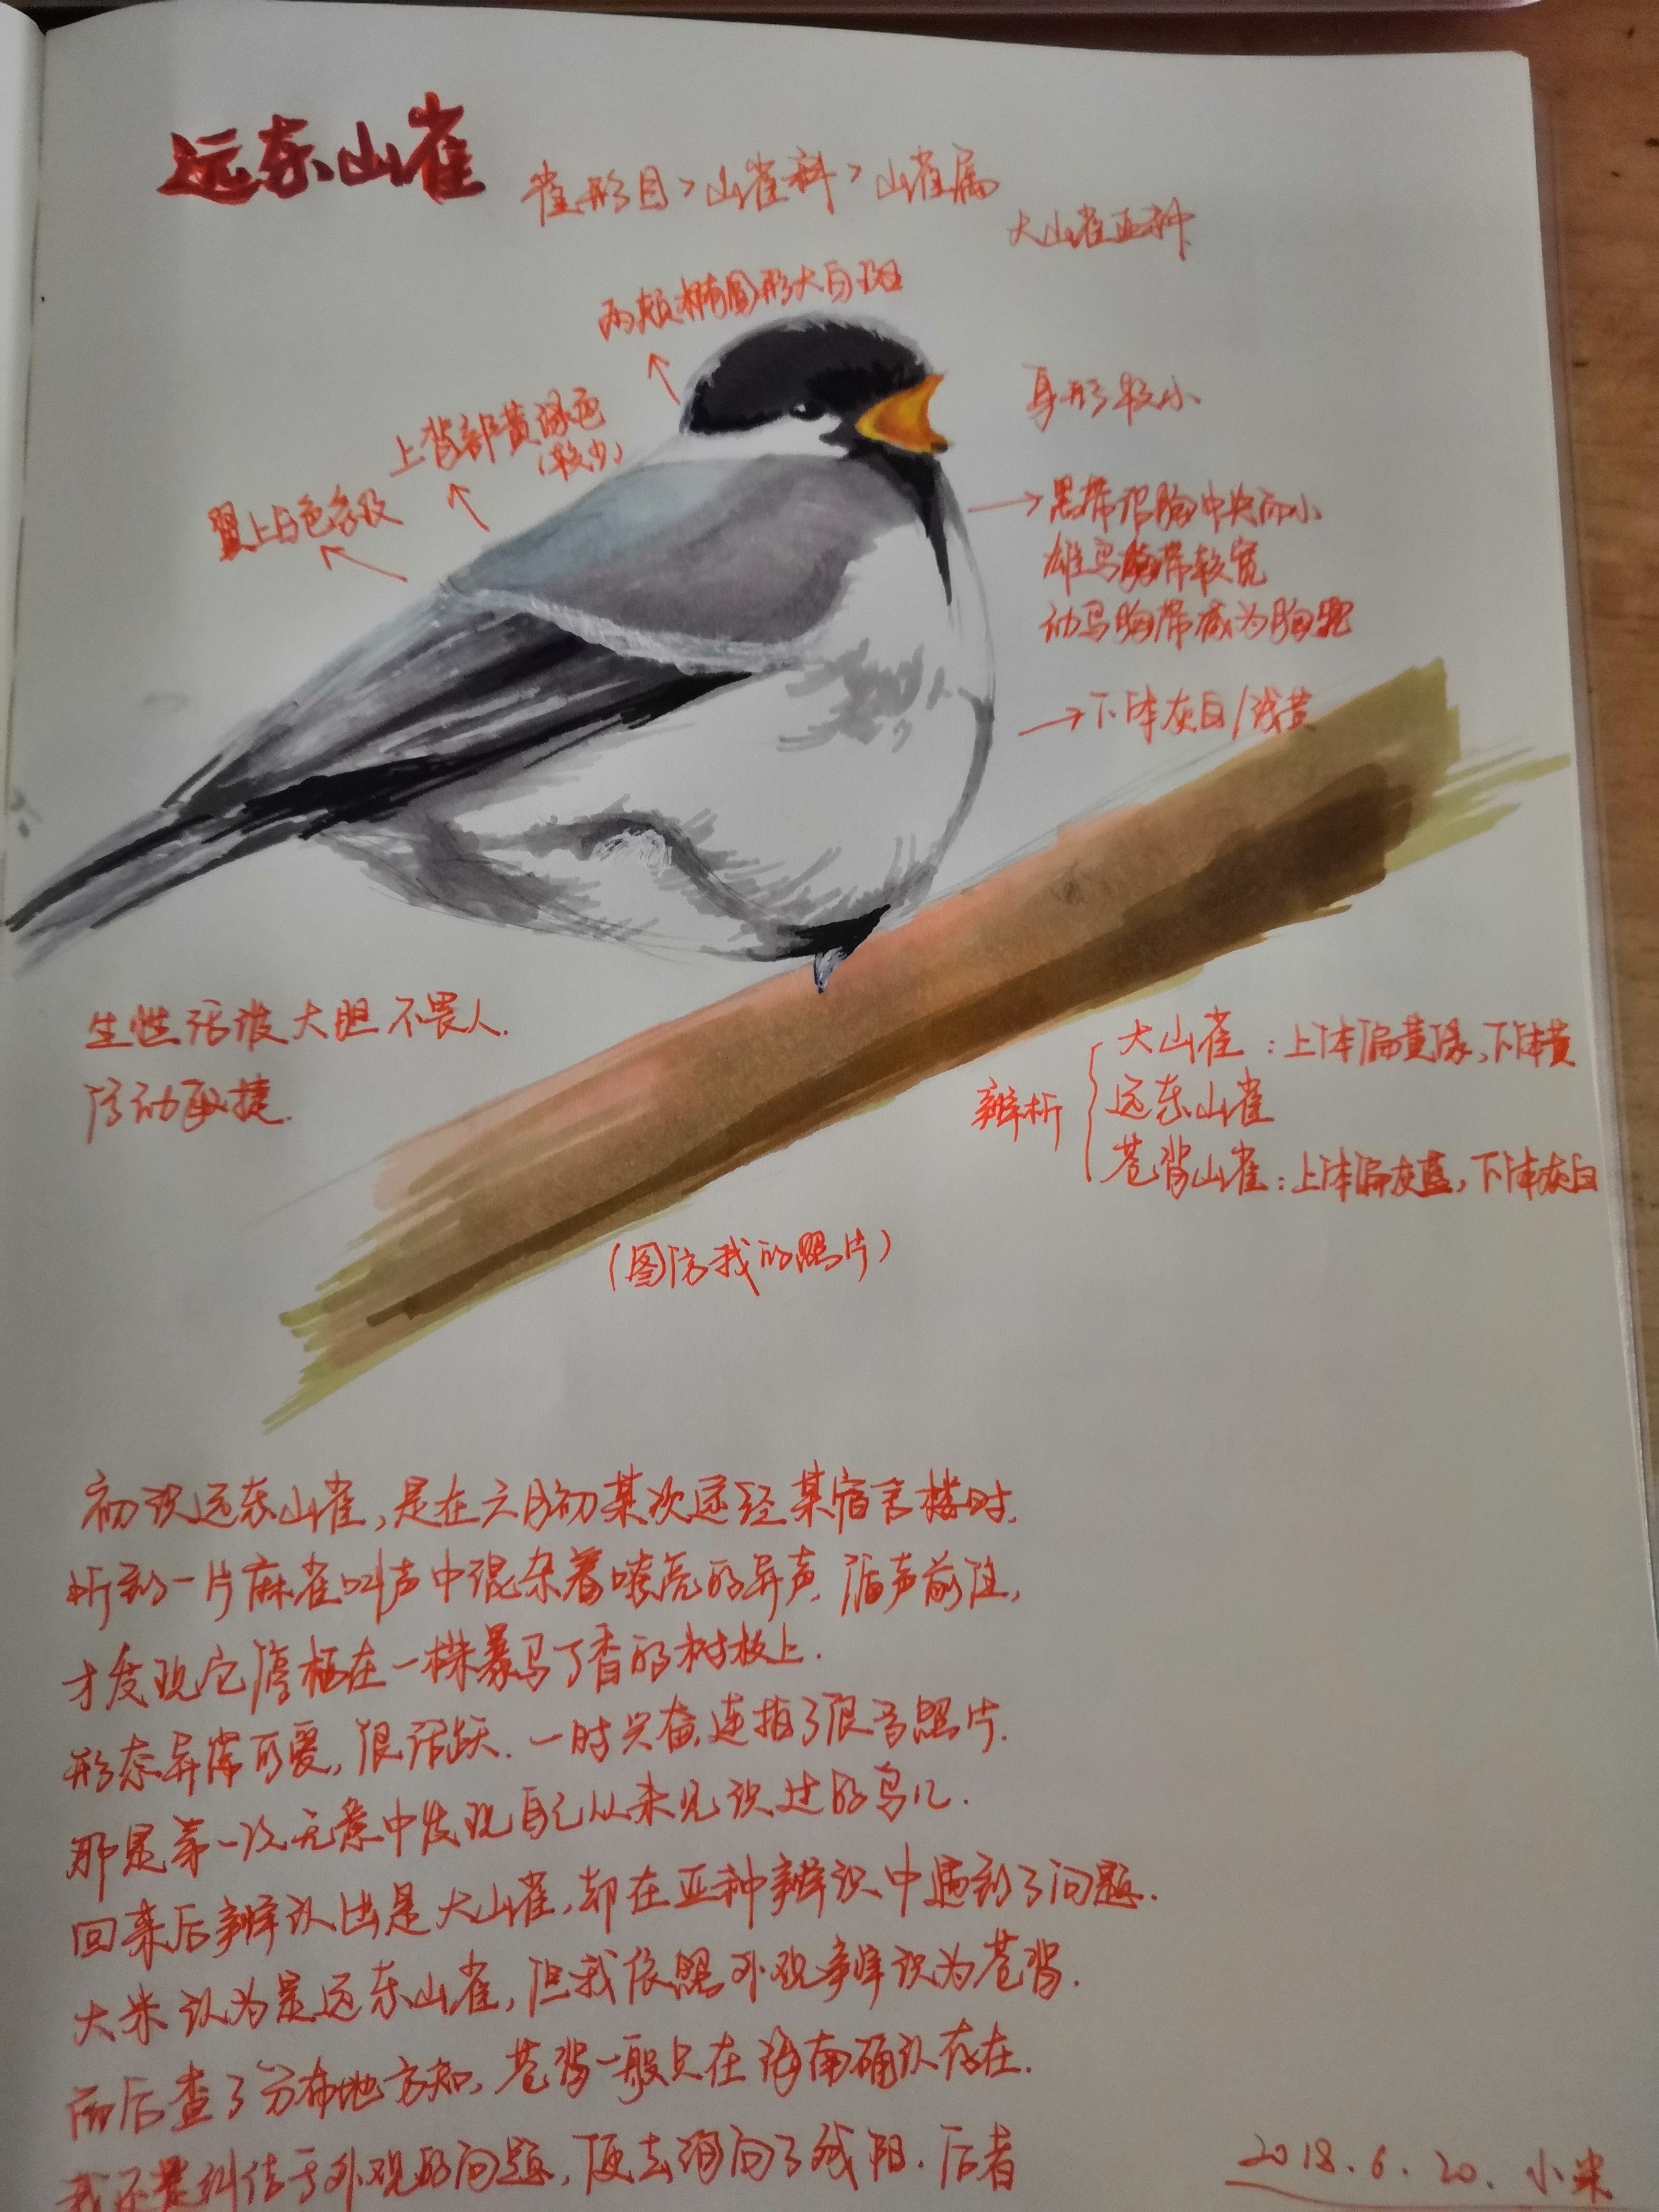 远东山雀
雀形目>山雀科>山雀属
大山雀亚种
两颊椭圆形大白斑
身形较小
上背部黄绿色
(较少)
翼上白色
黑带沿胸中央而小
雄鸟胸带较宽
幼鸟胸带减为胸兜
下体灰白/浅黄
生性活泼大胆不畏人.
行动敏捷.
辨析
大山雀:上体偏黄绿,下体黄
远东山雀
苍背山雀:上体偏灰蓝,下体灰白
(图仿我的照片)
初识远东山雀,是在六月初某次途经某宿舍楼时.
听到一片麻雀叫声中混杂着嘹亮的异声.循声前往,
才发现它停栖在一株暴马丁香的树枝上.
形态异常可爱,很活跃.一时兴奋连拍了很多照片.
那是第一次无意中发现自己从未见识过的鸟儿.
回来后辨认出是大山雀,却在亚种辨识中遇到了问题.
大米认为是远东山雀,但我依照外观辨识为苍背.
而后查了分布地方知,苍背一般只在海南确认存在.
我还是纠结于外观的问题,便去询问了残阳.后者
2018.6.20.小米